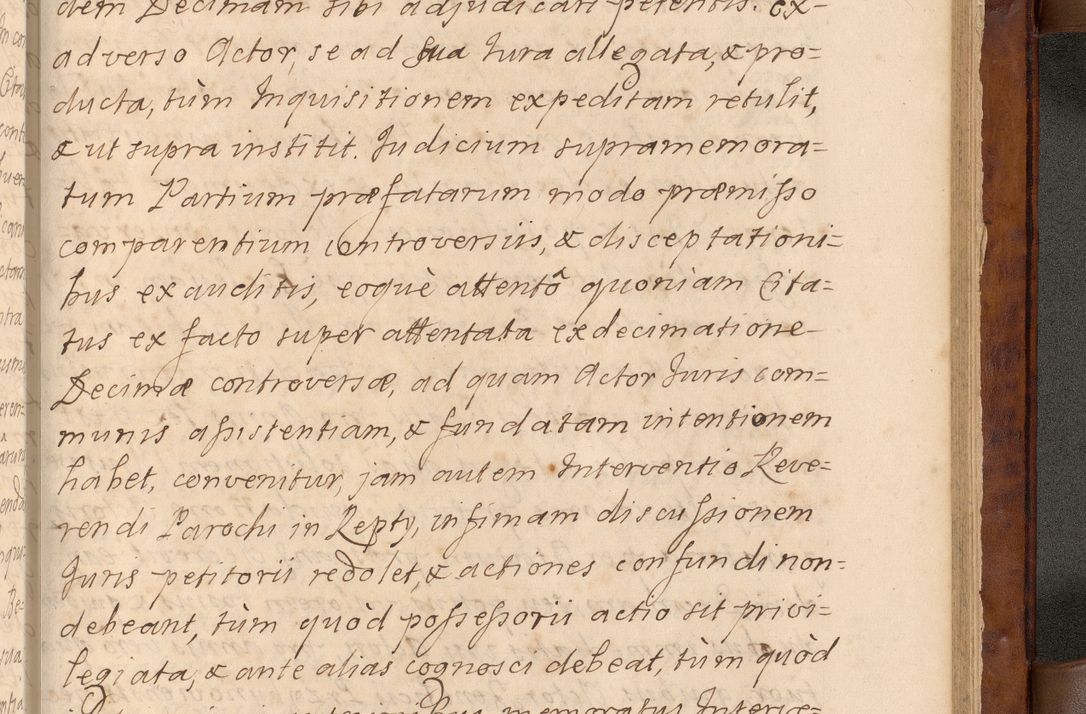 dem Decimam sibi adjudicari petentis. ex-
adverso Actor, se ad sua Jura allegata, & pro=
ducta, tùm Inquisitionem expeditam retulit,
& ut supra institit. Judicium supramemora=
tum Partium præfatarum modo præmisso
comparentium controversiis, & disceptationi=
bus exauditis, eoquè attentô quoniam Cita=
tus ex facto super attentata exdecimatione
Decimæ controversæ, ad quam Actor Juris com=
munis assistentiam, & fundatam intentionem
habet, convenitur, jam autem Interventio Reve=
rendi Parochi in Repty, infimam discussionem
Juris petitorii redolet, & actiones confundi non=
debeant, tùm quòd possessorii actio sit privi=
legiata, & ante alias cognosci debeat, tùm quòd
memoratus Interve=